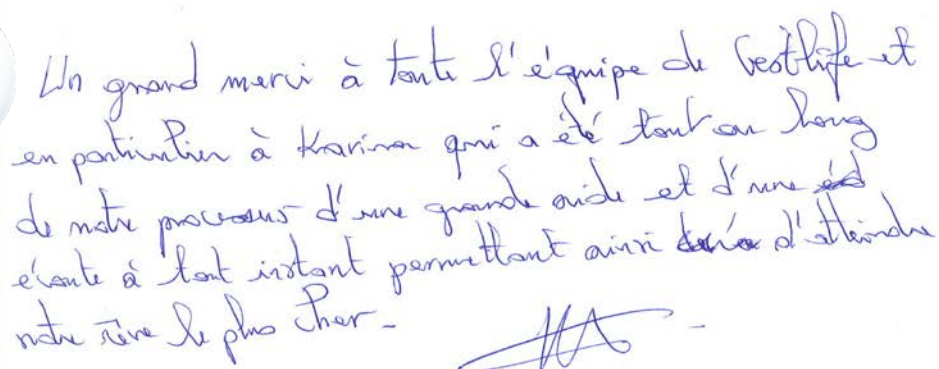 Un grand merci à toute l'équipe de Gestlife et
en particulier à Karina qui a été tout au long
de notre processus d'une grande aide et d'une
écoute à tout instant permettant ainsi d'atteindre
notre rêve le plus cher.